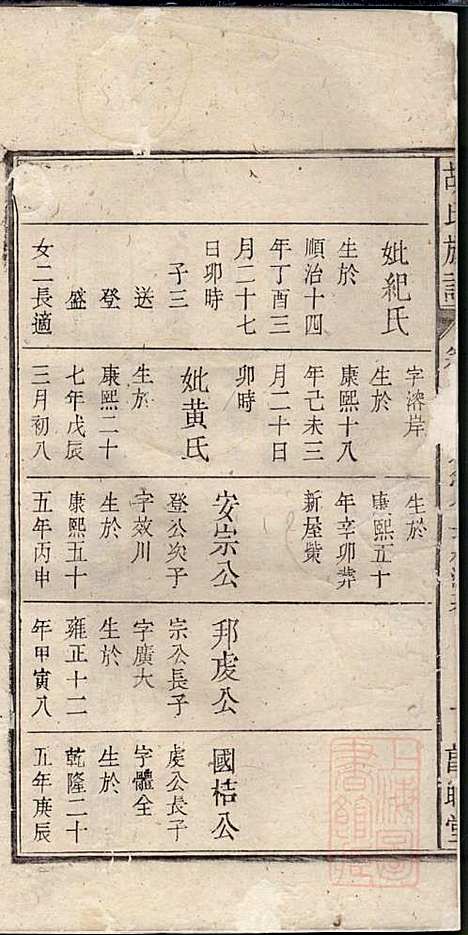 胡氏族譜
妣紀氏
生於
順治十四
年丁酉三
月二十七
日卯時
子三
送
登
盛
女二長適
字濬岸
生於
康熙十八
年己未三
月二十日
卯時
妣黃氏
生於
康熙二十
七年戊辰
三月初八
生於
康熙五十
年辛卯葬
新屋紫
安宗公
登公次子
字效川
生於
康熙五十
五年丙申
邦虔公
宗公長子
字廣大
生於
雍正十二
年甲寅八
國桔公
虔公長子
字體全
生於
乾隆二十
五年庚辰
上海圖書館藏